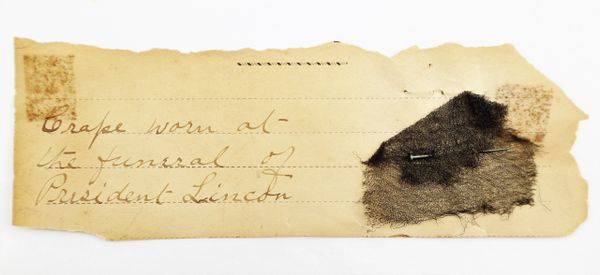 Crape worn at
the funeral of
President Lincon